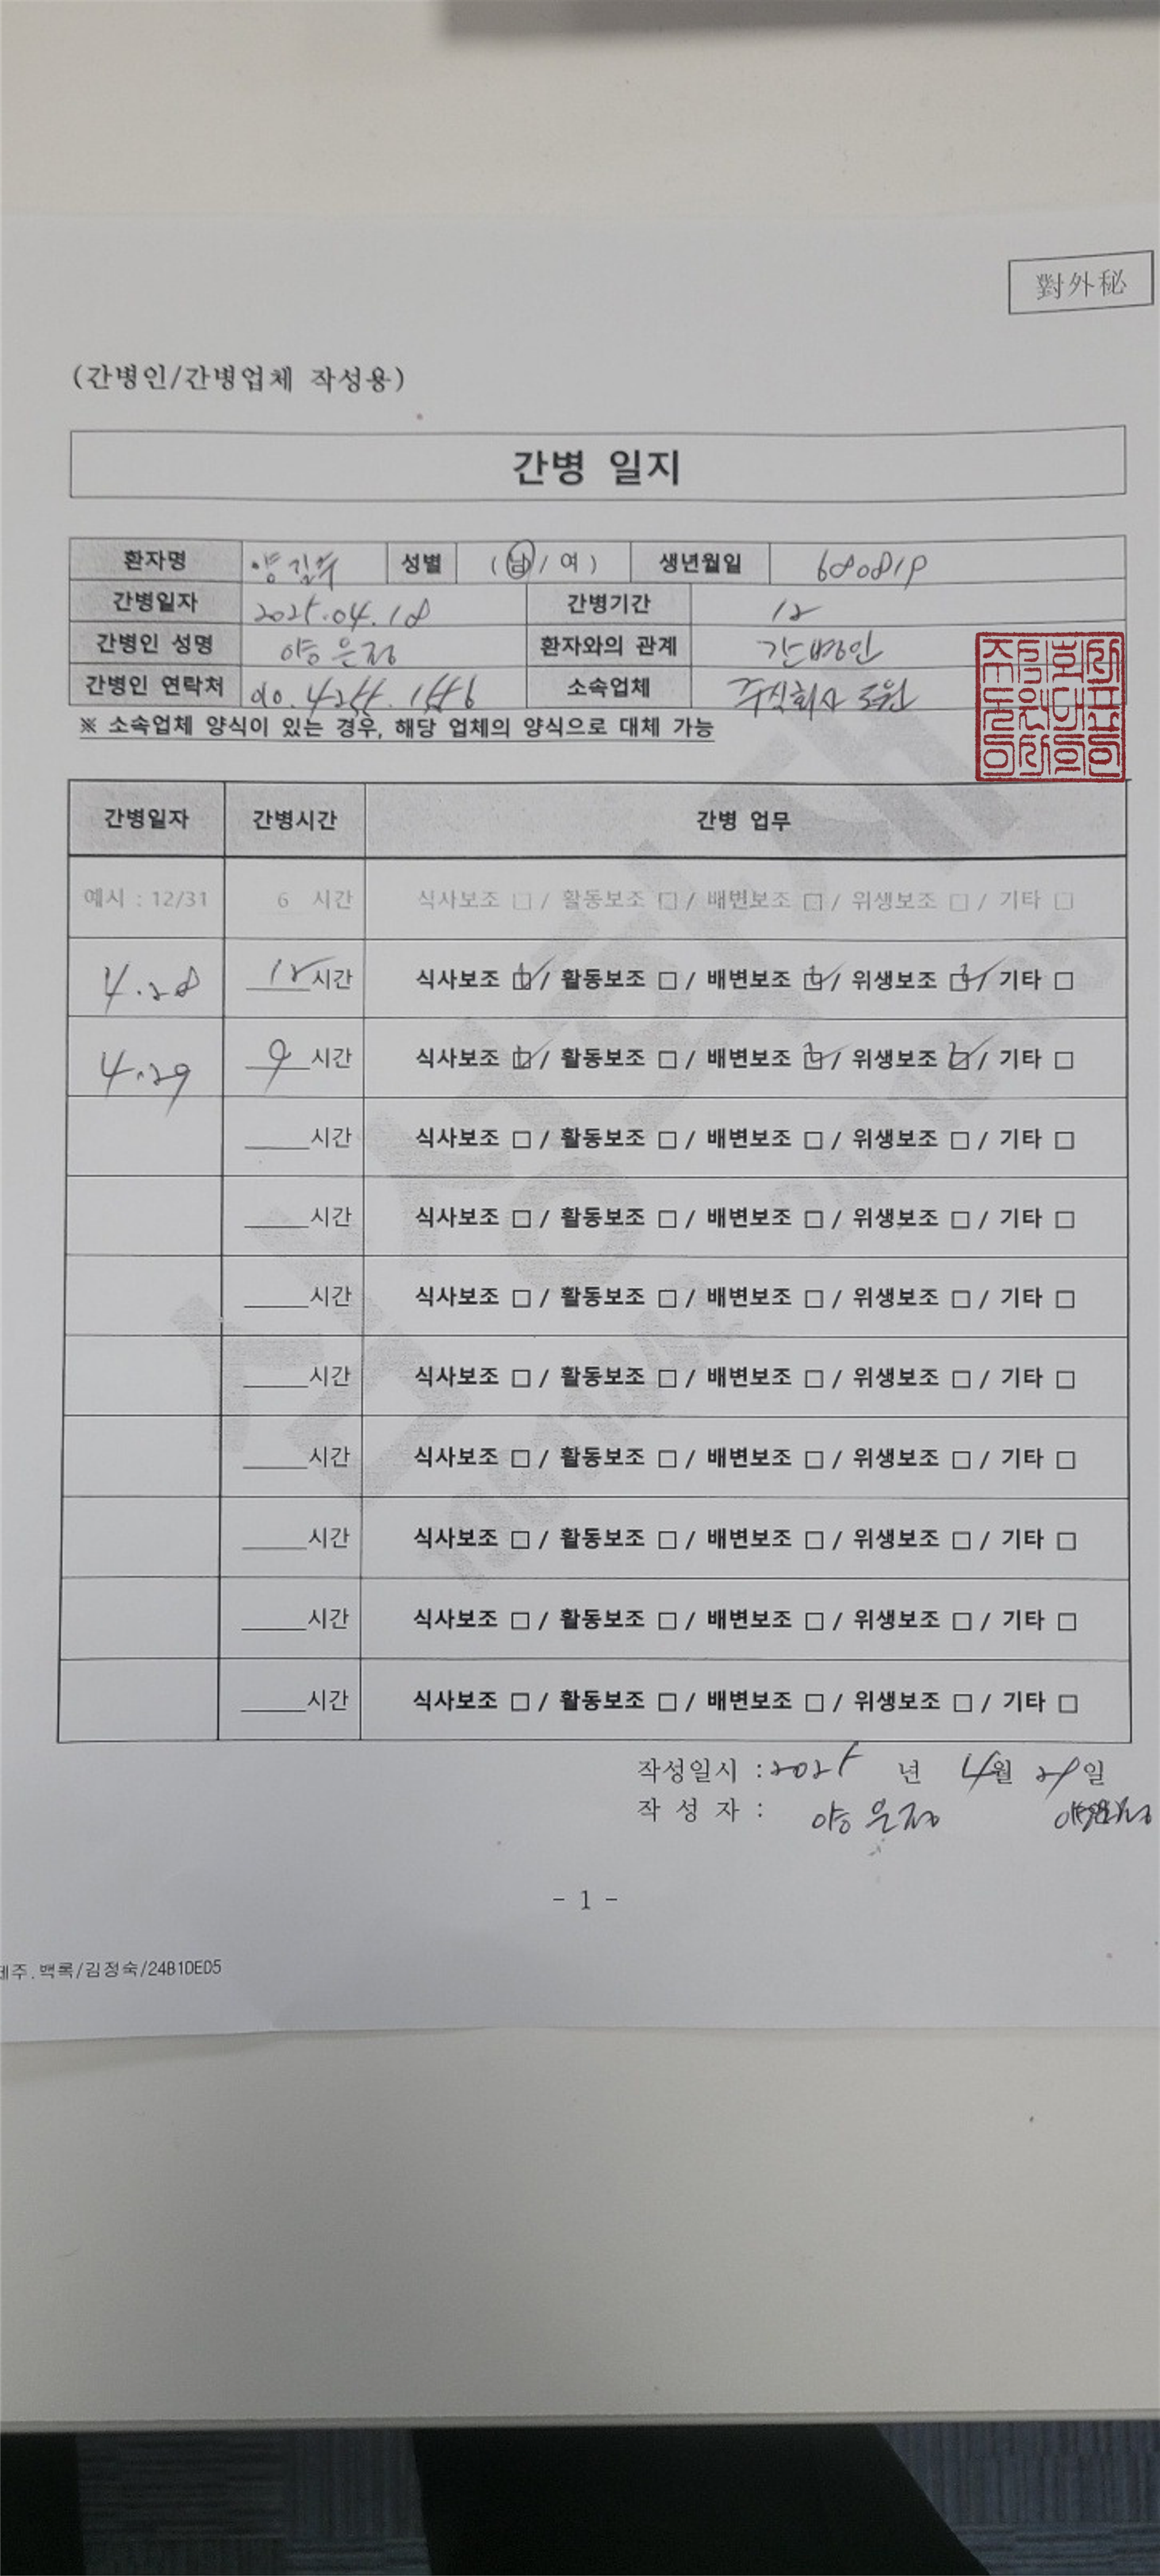 對外秘
(간병인/간병업체 작성용)
간병 일지
환자명 양길수 성별 (남/여) 생년월일 680819
간병일자 2025.04.18 간병기간 12
간병인 성명 양은정 환자와의 관계 간병인
간병인 연락처 010. 소속업체 주식회사 도원
※ 소속업체 양식이 있는 경우, 해당 업체의 양식으로 대체 가능
간병일자 간병시간 간병 업무
예시 : 12/31 6 시간 식사보조 □ / 활동보조 □ / 배변보조 □ / 위생보조 □ / 기타 □
4.28 12 시간 식사보조 ☑ / 활동보조 □ / 배변보조 ☑ / 위생보조 ☑ / 기타 □
4.29 9 시간 식사보조 ☑ / 활동보조 □ / 배변보조 ☑ / 위생보조 ☑ / 기타 □
시간 식사보조 □ / 활동보조 □ / 배변보조 □ / 위생보조 □ / 기타 □
시간 식사보조 □ / 활동보조 □ / 배변보조 □ / 위생보조 □ / 기타 □
시간 식사보조 □ / 활동보조 □ / 배변보조 □ / 위생보조 □ / 기타 □
시간 식사보조 □ / 활동보조 □ / 배변보조 □ / 위생보조 □ / 기타 □
시간 식사보조 □ / 활동보조 □ / 배변보조 □ / 위생보조 □ / 기타 □
시간 식사보조 □ / 활동보조 □ / 배변보조 □ / 위생보조 □ / 기타 □
시간 식사보조 □ / 활동보조 □ / 배변보조 □ / 위생보조 □ / 기타 □
시간 식사보조 □ / 활동보조 □ / 배변보조 □ / 위생보조 □ / 기타 □
작성일시 : 2025 년 4월 29일
작 성 자 : 양은정 양은정
- 1 -
제주.백록/김정숙/24B1DED5